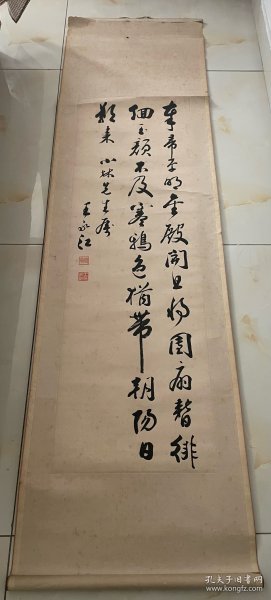 奉帚平明金殿開且将團扇暫徘
徊玉顔不及寒鴉色猶帶朝陽日
影来 小 先生屬
王永江
孔夫子旧书网